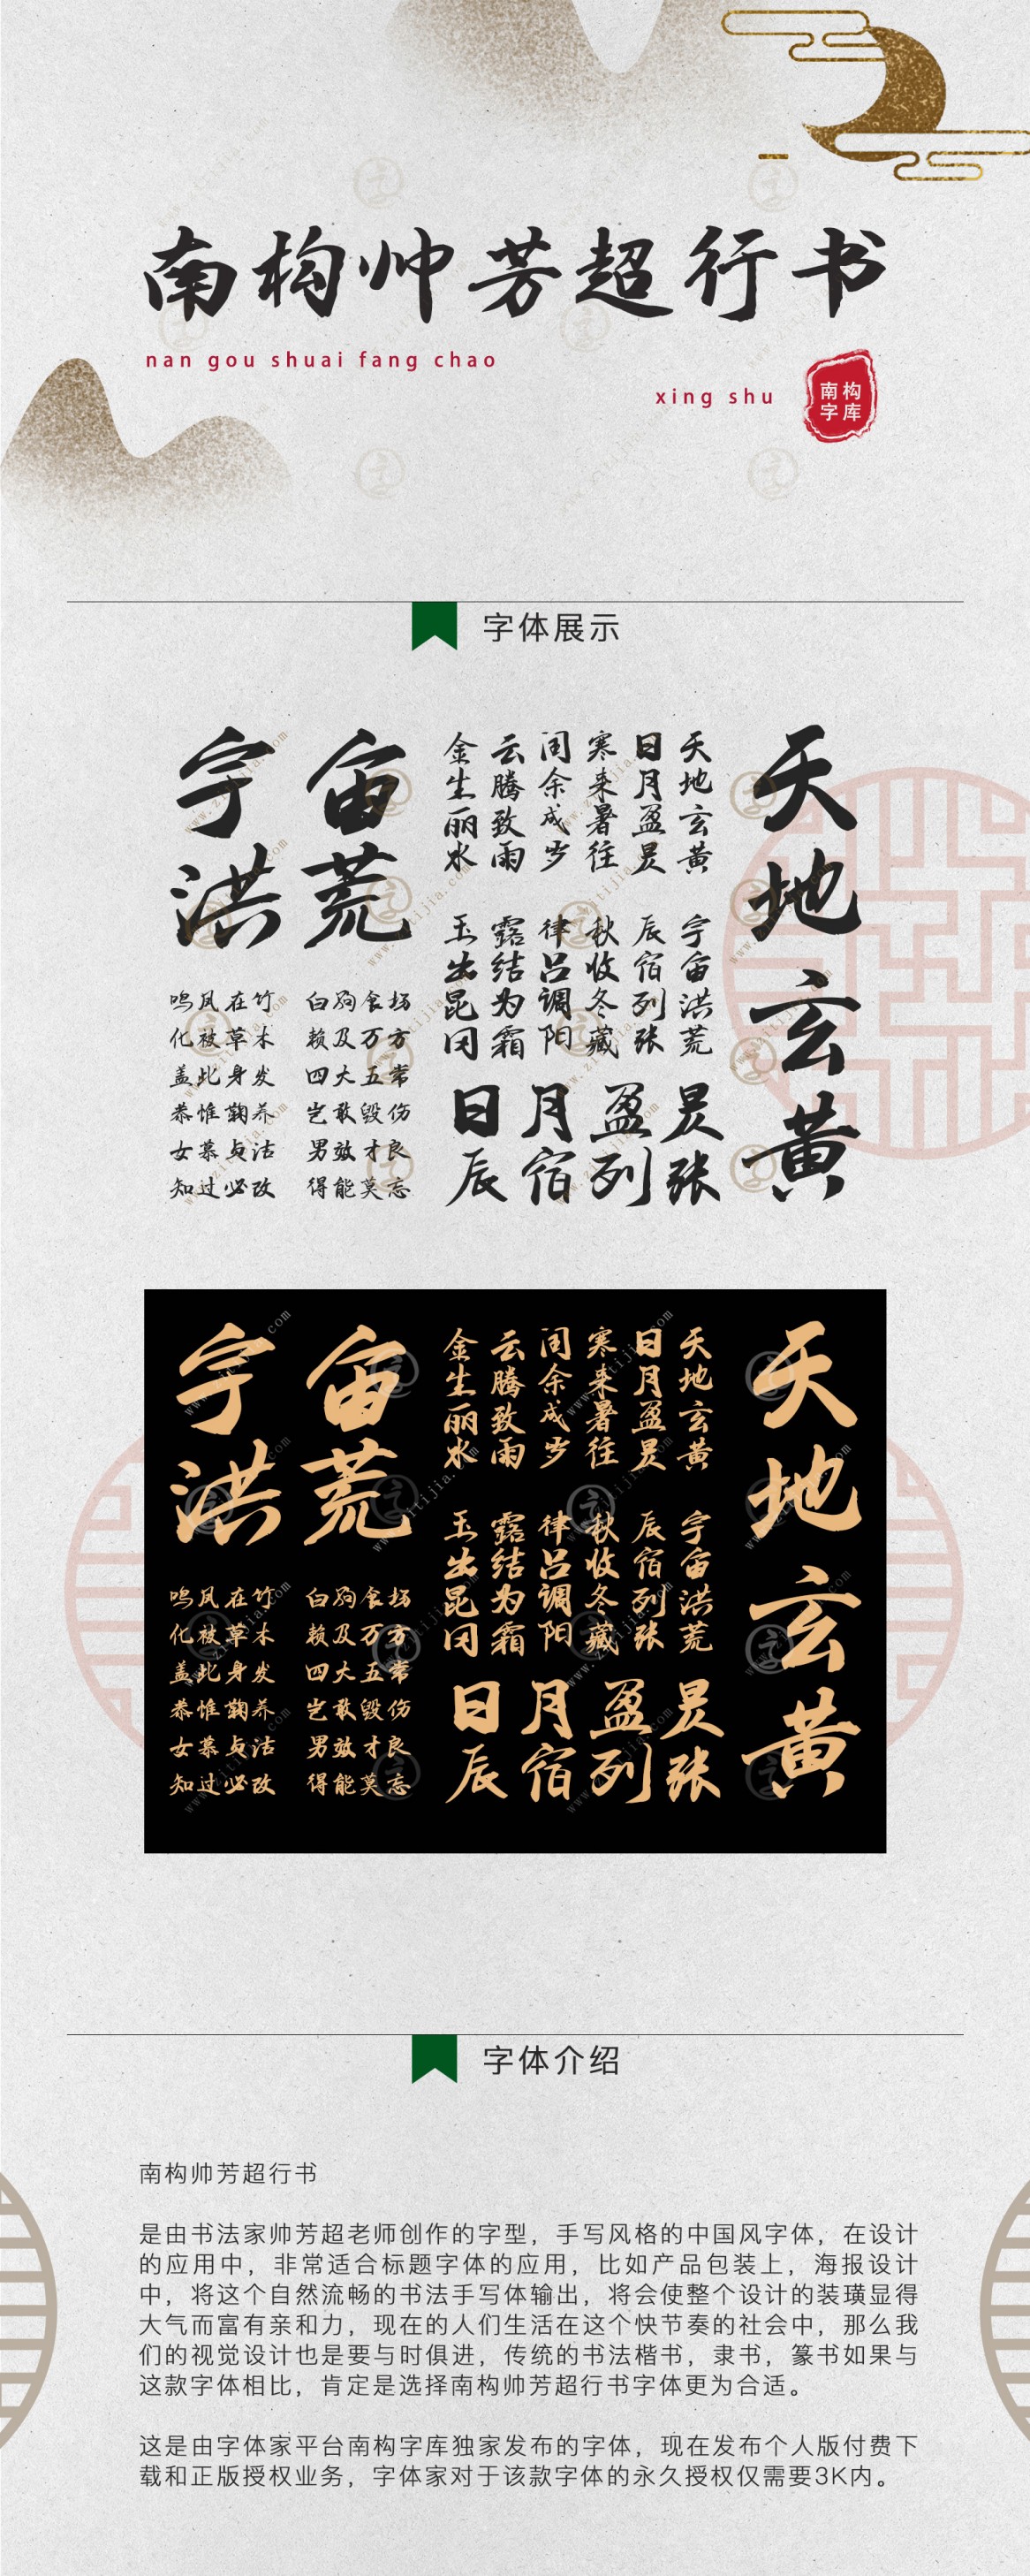 南构帅芳超行书
nan gou shuai fang chao
xing shu
南构
字库
字体展示
天地玄黄
天地玄黄
宇宙洪荒
日月盈昃
辰宿列张
寒来暑往
秋收冬藏
闰余成岁
律吕调阳
云腾致雨
露结为霜
金生丽水
玉出昆冈
日月盈昃
辰宿列张
宇宙
洪荒
鸣凤在竹 白驹食场
化被草木 赖及万方
盖此身发 四大五常
恭惟鞠养 岂敢毁伤
女慕贞洁 男效才良
知过必改 得能莫忘
天地玄黄
天地玄黄
宇宙洪荒
日月盈昃
辰宿列张
寒来暑往
秋收冬藏
闰余成岁
律吕调阳
云腾致雨
露结为霜
金生丽水
玉出昆冈
日月盈昃
辰宿列张
宇宙
洪荒
鸣凤在竹 白驹食场
化被草木 赖及万方
盖此身发 四大五常
恭惟鞠养 岂敢毁伤
女慕贞洁 男效才良
知过必改 得能莫忘
字体介绍
南构帅芳超行书
是由书法家帅芳超老师创作的字型，手写风格的中国风字体，在设计
的应用中，非常适合标题字体的应用，比如产品包装上，海报设计
中，将这个自然流畅的书法手写体输出，将会使整个设计的装璜显得
大气而富有亲和力，现在的人们生活在这个快节奏的社会中，那么我
们的视觉设计也是要与时俱进，传统的书法楷书，隶书，篆书如果与
这款字体相比，肯定是选择南构帅芳超行书字体更为合适。
这是由字体家平台南构字库独家发布的字体，现在发布个人版付费下
载和正版授权业务，字体家对于该款字体的永久授权仅需要3K内。
www.zitijia.com